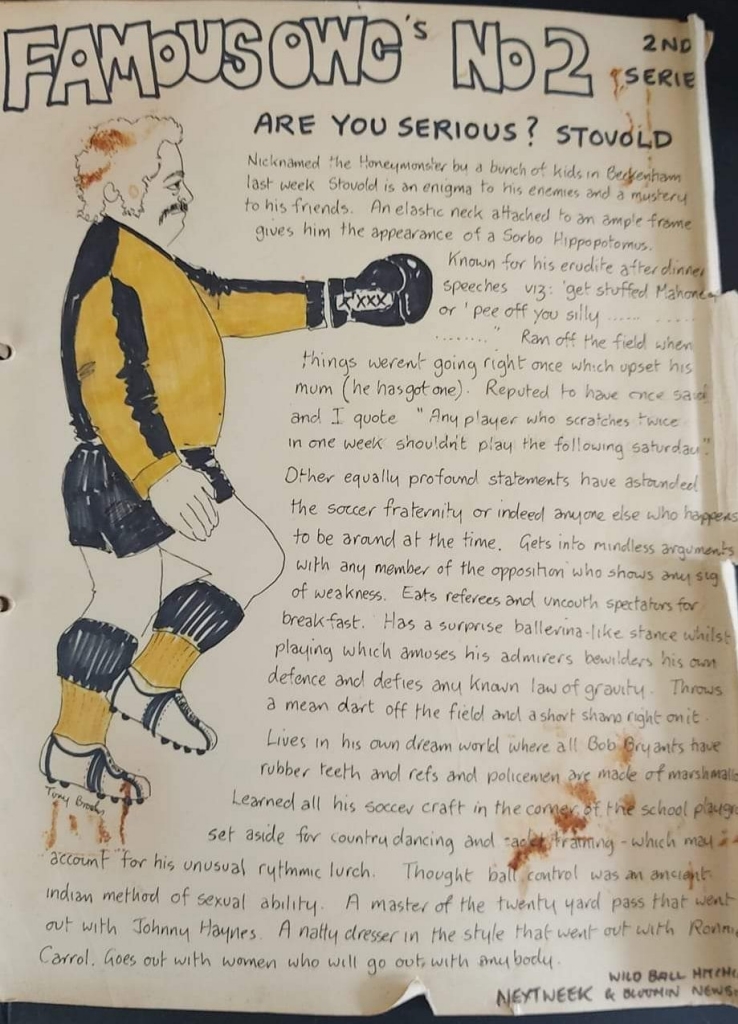 FAMOUS OWC's No 2
2ND SERIE
ARE YOU SERIOUS? STOVOLD
Nicknamed the Honeymonster by a bunch of kids in Beckenham
last week Stovold is an enigma to his enemies and a mustery
to his friends. An elastic neck attached to an ample frame
gives him the appearance of a Sorbo Hippopotomus.
Known for his erudite after dinner
speeches viz: 'get stuffed Mahoney
or 'pee off you silly ...... .......
........" Ran off the field when
things werent going right once which upset his
mum (he has got one). Reputed to have once said
and I quote "Any player who scratches twice
in one week shouldn't play the following saturday"
Other equally profound statements have astounded
the soccer fraternity or indeed anyone else who happens
to be around at the time. Gets into mindless arguments
with any member of the opposition who shows any sig
of weakness. Eats referees and uncouth spectators for
breakfast. Has a surprise ballerina-like stance whilst
playing which amuses his admirers bewilders his own
defence and defies any known law of gravity. Throws
a mean dart off the field and a short sharp right on it.
Lives in his own dream world where all Bob Bryants have
rubber teeth and refs and policemen are made of marshmall
Learned all his soccer craft in the corner of the school playgr
set aside for country dancing and training - which may
account for his unusual rythmic lurch. Thought ball control was an ancient
indian method of sexual ability. A master of the twenty yard pass that went
out with Johnny Haynes. A natty dresser in the style that went out with Ronn
Carrol. Goes out with women who will go out with anybody.
XXX
Tony Brooks
WILD BALL HITCH
NEXT WEEK & BLOOMIN NEWS